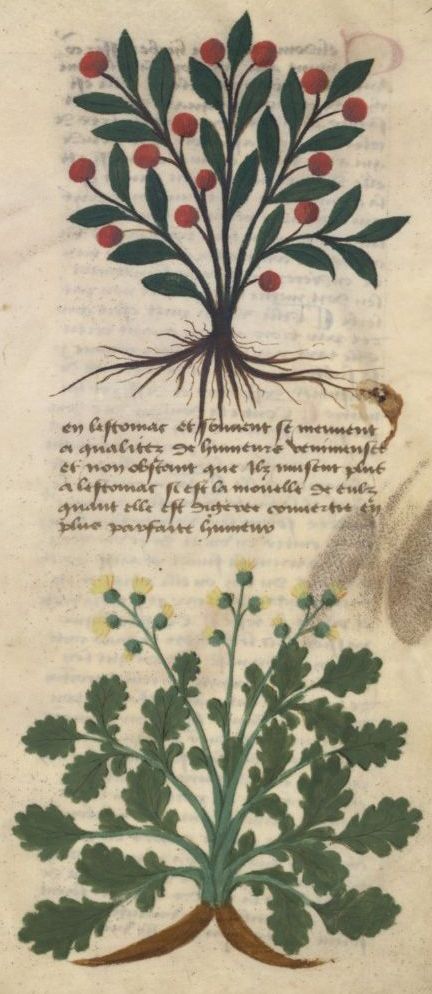 en lestomac et souvent se meuvent
a qualitez de humeurs venimeuses
et non obstant que ilz nuisent plus
a lestomac si est la mouelle de eulz
quant elle est digeree convertie en
plus parfaite humeur